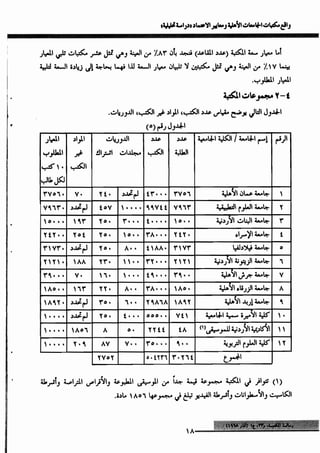 واقع مكتبات الجامعات الأهلية ومعايير الاعتماد «دراسة تحليلية»
أما معيار سعة المكتبة (عدد المقاعد) فنجد بأن ٨٣٪ من العينة وهي تمثل عشر مكتبات تلبي المعيار
بينما ١٧٪ من العينة وهي تمثل مكتبتين لا تلبيان معيار السعة لذا لهما بحاجة إلى زيادة السعة لتلبية
المعيار المطلوب.
٤-٢ مجموعات المكتبة
الجدول التالي يوضح مقياس عدد الكتب، المواد غير الكتب، الدوريات.
الجدول رقم (٥)
الرقم إسم الجامعة / الكلية الجامعية عدد الطلبة عدد الكتب الدوريات مجلدات اشتراك المواد غير الكتب المعيار المطلوب ١٠ كتب لكل طالب
١ جامعة عمان الأهلية ٣٧٥٦ ٤٣٠٠٠ لم تحدد ٢٤٠ ٧٠ ٣٧٥٦٠
٢ جامعة العلوم التطبيقية ٧٩٦٣ ٩٩٧٤٤ ١٠٠٠٠ ٤٥٧ لم تحدد ٧٩٦٣٠
٣ جامعة البنات الأردنية ١٥٠٠ ٤٠٠٠٠ ٣٠٠٠ ٢٥٠ ١٩٣ ١٥٠٠٠
٤ جامعة الإسراء ٢٤٢٠ ٣٨٠٠٠ ١٥٠٠ ٢٥٠ ٢٥٤ ٢٤٢٠٠
٥ جامعة فيلادلفيا ٣١٧٣ ٤١٨٨٠ ٨٠٠ ٢٥٠ لم تحدد ٣١٧٣٠
٦ جامعة الزيتونة الأردنية ٢١٢١ ٣٢٠٠٠ ١١٠٠ ٢٣٠ ١٨٨ ٢١٢١٠
٧ جامعة جرش الأهلية ٣٩٠٠ ٤٩٠٠٠ ١٠٠٠ ١٦٠ ٧٠ ٣٩٠٠٠
٨ جامعة الزرقاء الأهلية ١٨٥٠ ٣٨٠٠٠ ٨٠٠ ٢٢٠ ١٦٣ ١٨٥٠٠
٩ جامعة إربد الأهلية ١٨٩٢ ٢٩٨٦٨ ٦٠٠ ٣٥٠ لم تحدد ١٨٩٢٠
١٠ كلية الأميرة سمية الجامعية ٧٤١ ٥٥٠٠ ٤٠٠٠ ٢٥٠ لم تحدد ١٠٠٠٠
١١ الأكاديمية الأردنية للموسيقى(١) ٤٨ ٢٢٤٤ ٥٠ ٨ ١٨٥٦ ١٠٠٠٠
١٢ كلية العلوم التربوية ٩٠٠ ٣٥٠٠٠ ٧٠٠ ٨٧ ٢٠٩ ١٠٠٠٠
المجموع ٣٠٢٦٤ ٤٥٤٢٣٦ ٢٧٥٢
(١) تتوافر في المكتبة مجموعة قيمة جداً من الموسيقى المطبوعة والأقراص المتراصة وأشرطة
الكاسيت والأسطوانات وأشرطة الفيديو تبلغ في مجموعها ١٨٥٦ مادة.
١٨